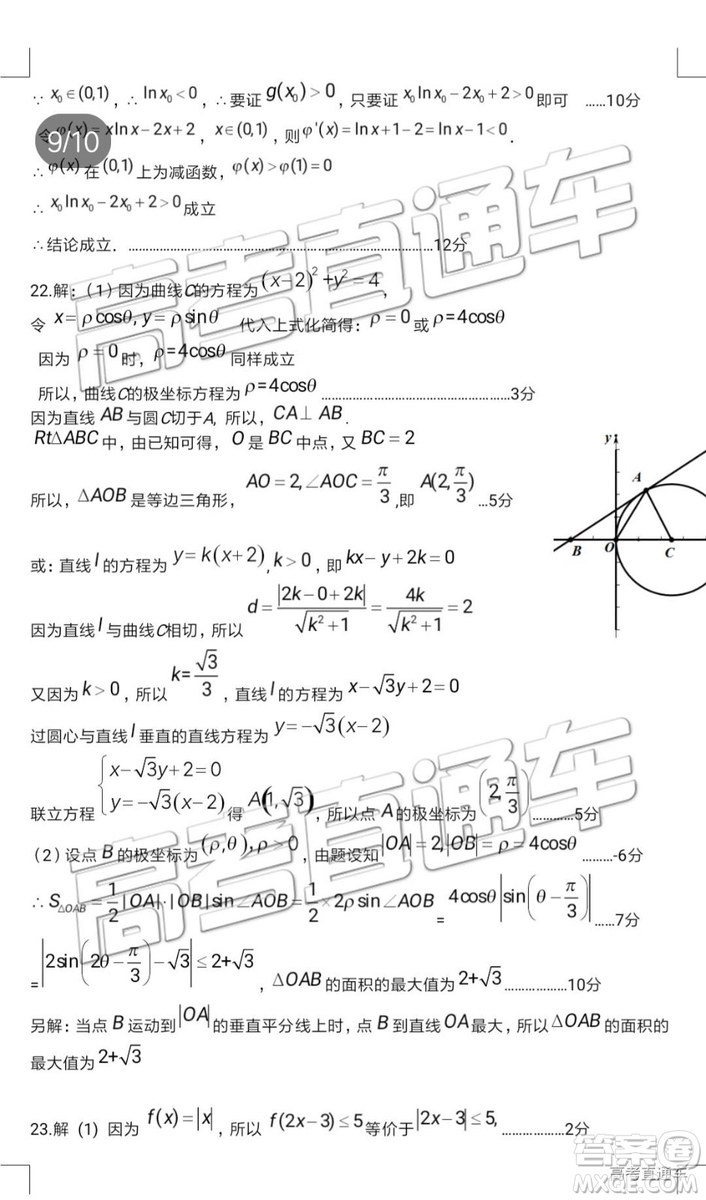 ∵ x₀∈(0,1)，∴ ln x₀<0，∴要证 g(x₀)>0，只要证 x₀ln x₀−2x₀+2>0即可 ……10分
令φ(x)=xln x−2x+2，x∈(0,1)，则φ'(x)=ln x+1−2=ln x−1<0.
9/10
∴φ(x)在(0,1)上为减函数，φ(x)>φ(1)=0
∴ x₀ln x₀−2x₀+2>0成立
∴结论成立．……………………………………………………12分
22.解：（1）因为曲线C的方程为(x−2)²+y²=4，
令 x=ρcosθ,y=ρsinθ 代入上式化简得：ρ=0或ρ=4cosθ
因为ρ=0时，ρ=4cosθ同样成立
所以，曲线C的极坐标方程为ρ=4cosθ ………………………………3分
因为直线AB与圆C切于A，所以，CA⊥AB.
Rt△ABC中，由已知可得，O是BC中点，又BC=2
所以，△AOB是等边三角形，AO=2,∠AOC=π/3,即 A(2,π/3) …5分
y
A
B O C
或：直线l的方程为y=k(x+2),k>0，即kx−y+2k=0
因为直线l与曲线C相切，所以 d=|2k−0+2k|/√(k²+1)=4k/√(k²+1)=2
又因为k>0，所以 k=√3/3，直线l的方程为x−√3y+2=0
过圆心与直线l垂直的直线方程为y=−√3(x−2)
联立方程{x−√3y+2=0
y=−√3(x−2)得A(1,√3)，所以点A的极坐标为(2,π/3)…………5分
（2）设点B的极坐标为(ρ,θ),ρ>0，由题设知|OA|=2,|OB|=ρ=4cosθ ………-6分
∴S△OAB=1/2|OA|·|OB|sin∠AOB=1/2×2ρsin∠AOB = 4cosθ|sin(θ−π/3)| ……7分
=|2sin(2θ−π/3)−√3|≤2+√3，△OAB的面积的最大值为2+√3………………10分
另解：当点B运动到|OA|的垂直平分线上时，点B到直线OA最大，所以△OAB的面积的
最大值为2+√3
23.解 (1) 因为 f(x)=|x|，所以 f(2x−3)≤5等价于|2x−3|≤5, ………………2分
高考直通车
高考直通车
答案圈
高考直通车
MXQE.COM